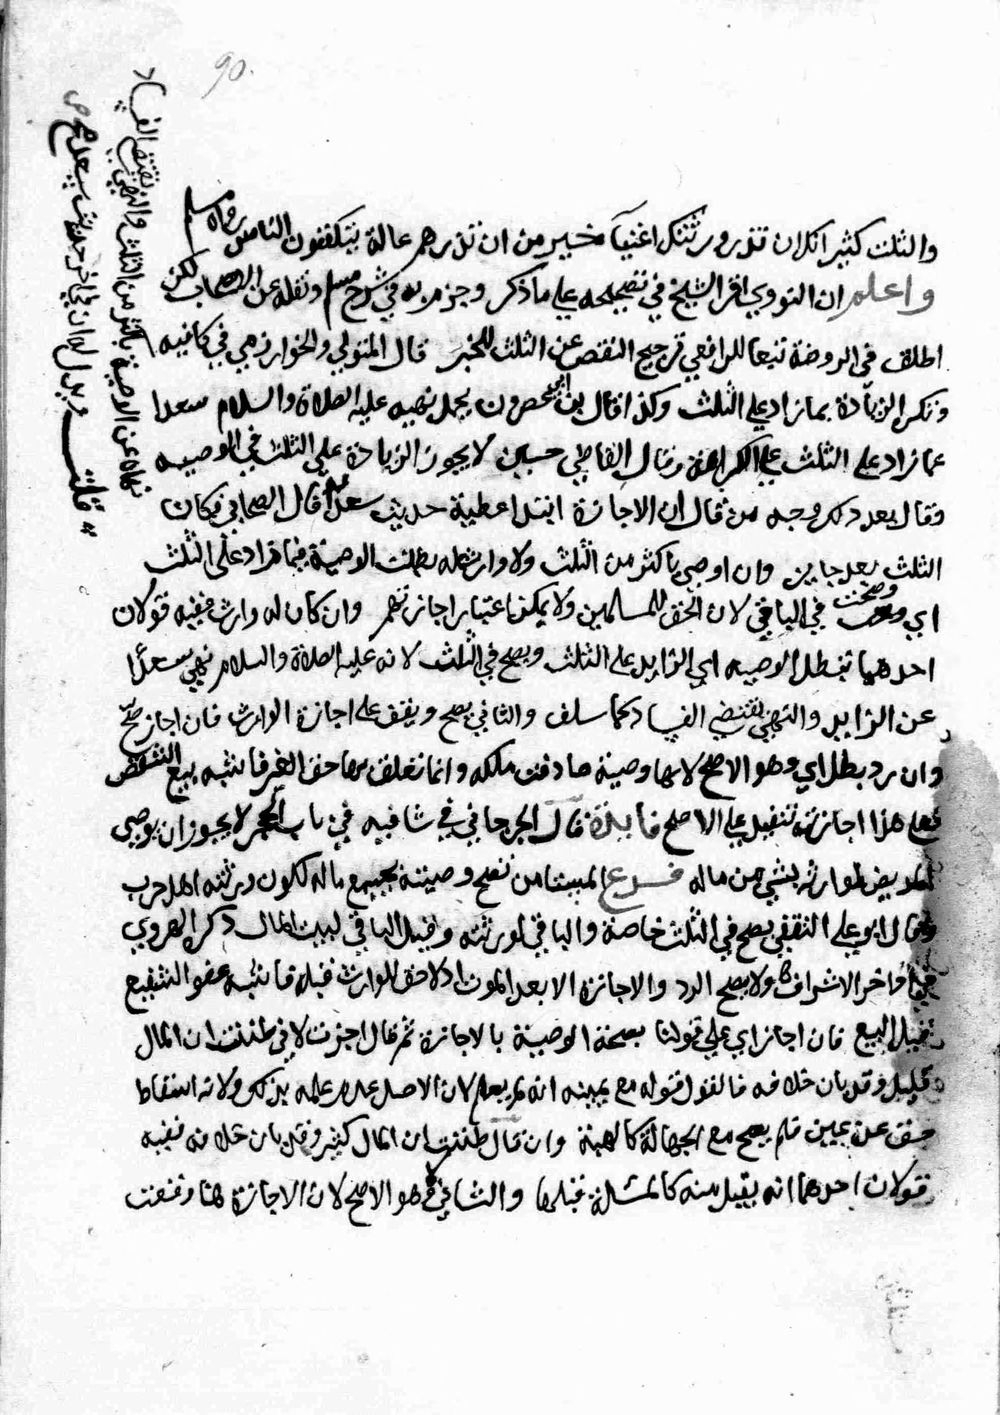 90
والثلث كثير انك ان تذر ورثتك اغنيا خير من ان تذرهم عالة يتكففون الناس رواه مسلم
واعلم ان النووي اقر الشيخ في تصحيحه على ما ذكر وجزم به في شرح مسلم ونقله عن الاصحاب لكن
اطلق في الروضة تبعا للرافعي ترجيح النقص عن الثلث للخبر قال المتولي والخوارزمي في كافيه
وتكره الزيادة بما زاد على الثلث وكذا قال يحمل نهيه عليه الصلاة والسلام سعدا
عما زاد على الثلث على الكراهة وقال القاضي حسين لا يجوز الزيادة على الثلث في الوصيه
وقال بعد ذلك وجه من قال ان الاجازة ابتدا عطية حديث سعد قال الصحابي فكان
الثلث بعد جايز وان اوصي باكثر من الثلث ولا وارث له بطلت الوصية فيما زاد على الثلث
اي وصحت في الباقي لان الحق للمسلمين ولا يمكن اعتبار اجازتهم وان كان له وارث ففيه قولان
احدهما تبطل الوصيه اي الزايد على الثلث ويصح في الثلث لانه عليه الصلاة والسلام نهي سعدا
عن الزايد والنهي يقتضي الفساد كما سلف والثاني يصح ويقف على اجازة الوارث فان اجاز صح
وان رد بطل اي وهو الاصح لانها وصية صادفت ملكه وانما تعلق بها حق الغير فاشبه بيع الشقص
فعلى هذا اجازته تنفيذ على الاصح فايدة قال الجرجاني في شافيه في باب الحجر لا يجوز ان يوصي
المريض لوارثه بشي من ماله فرع المبيت من تصح وصيته بجميع ماله لكون ورثته اهل حرب
وقال ابو علي الثقفي يصح في الثلث خاصة والباقي لورثته وقيل الباقي لبيت المال ذكره الهروي
في اواخر الاشراف ولا يصح الرد والاجازة الا بعد الموت اذ لا حق للوارث قبله فاشبه عفو الشفيع
قبل البيع فان اجاز اي على قولنا بصحة الوصية بالاجازة ثم قال اجزت لاني ظننت ان المال
قليل وقد بان خلافه فالقول قوله مع يمينه انه لم يعلم لان الاصل عدم علمه بذلك ولانه اسقاط
حق عن عين فلم يصح مع الجهالة كالهبة وان قال ظننت ان المال كثير وقد بان خلافه ففيه
قولان احدهما انه يقبل منه كالمسئلة قبلها والثاني وهو الاصح لان الاجازة هنا وقعت
قلت ويدل له ان في اخر حديث سعد صح ص
نهاه عن الوصية باكثر من الثلث والنهي يقتضي الفساد